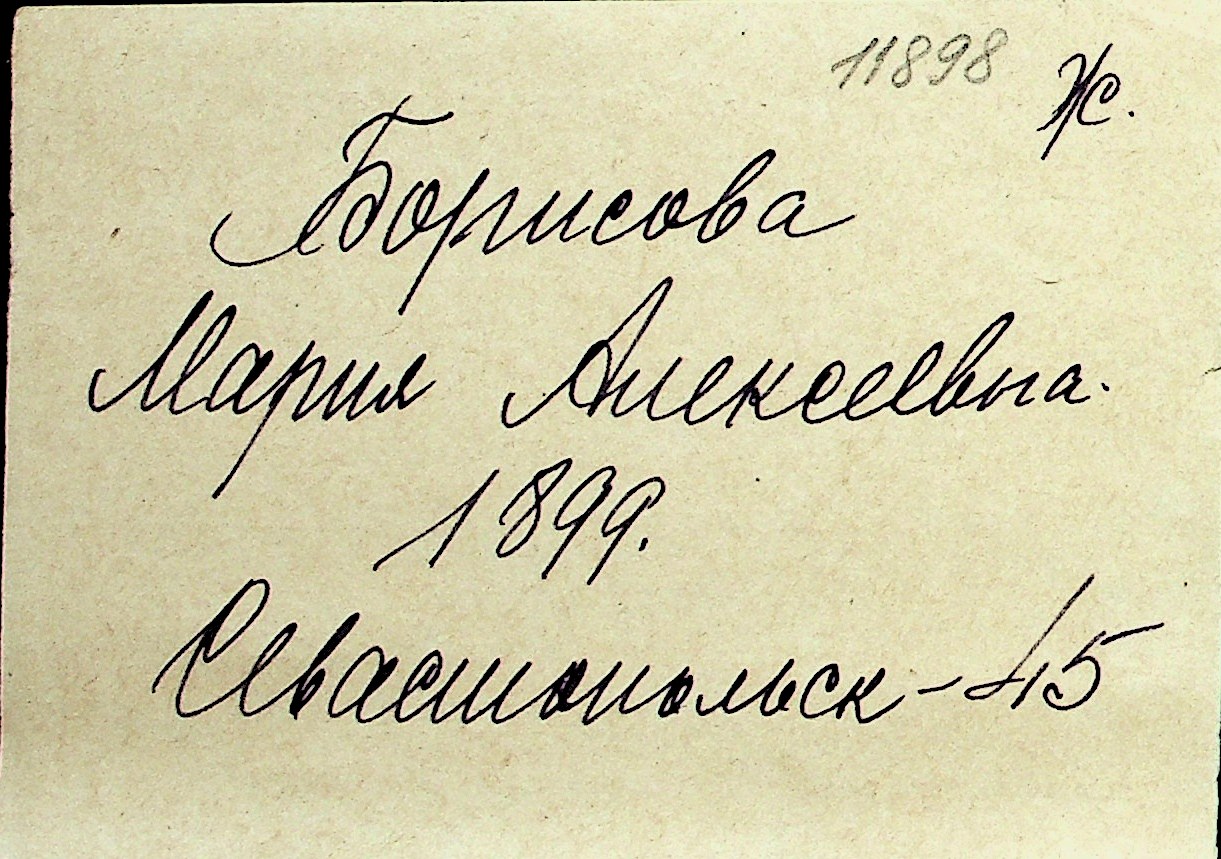 11898 Ж.
Борисова
Мария Алексеевна.
1899.
Севастопольск-45